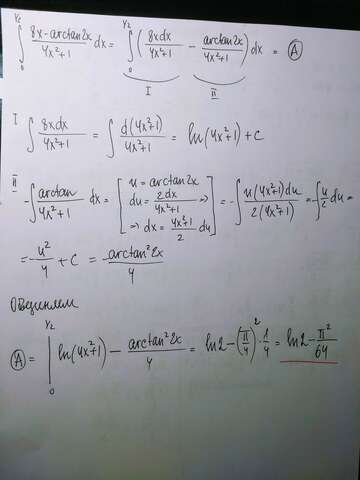 ∫₀^{1/2} (8x - arctan2x)/(4x²+1) dx = ∫₀^{1/2} (8xdx/(4x²+1) - arctan2x/(4x²+1)) dx = Ⓐ
I II
I ∫ 8xdx/(4x²+1) = ∫ d(4x²+1)/(4x²+1) = ln(4x²+1) + C
II -∫ arctan/(4x²+1) dx = [u = arctan2x
du = 2dx/(4x²+1) ⇒
⇒ dx = (4x²+1)/2 du] = -∫ u(4x²+1)du/2(4x²+1) = -∫ u/2 du =
= -u²/4 + C = arctan²2x/4
Объединяем
Ⓐ = |₀^{1/2} ln(4x²+1) - arctan²2x/4 = ln2 - (π/4)² · 1/4 = ln2 - π²/64